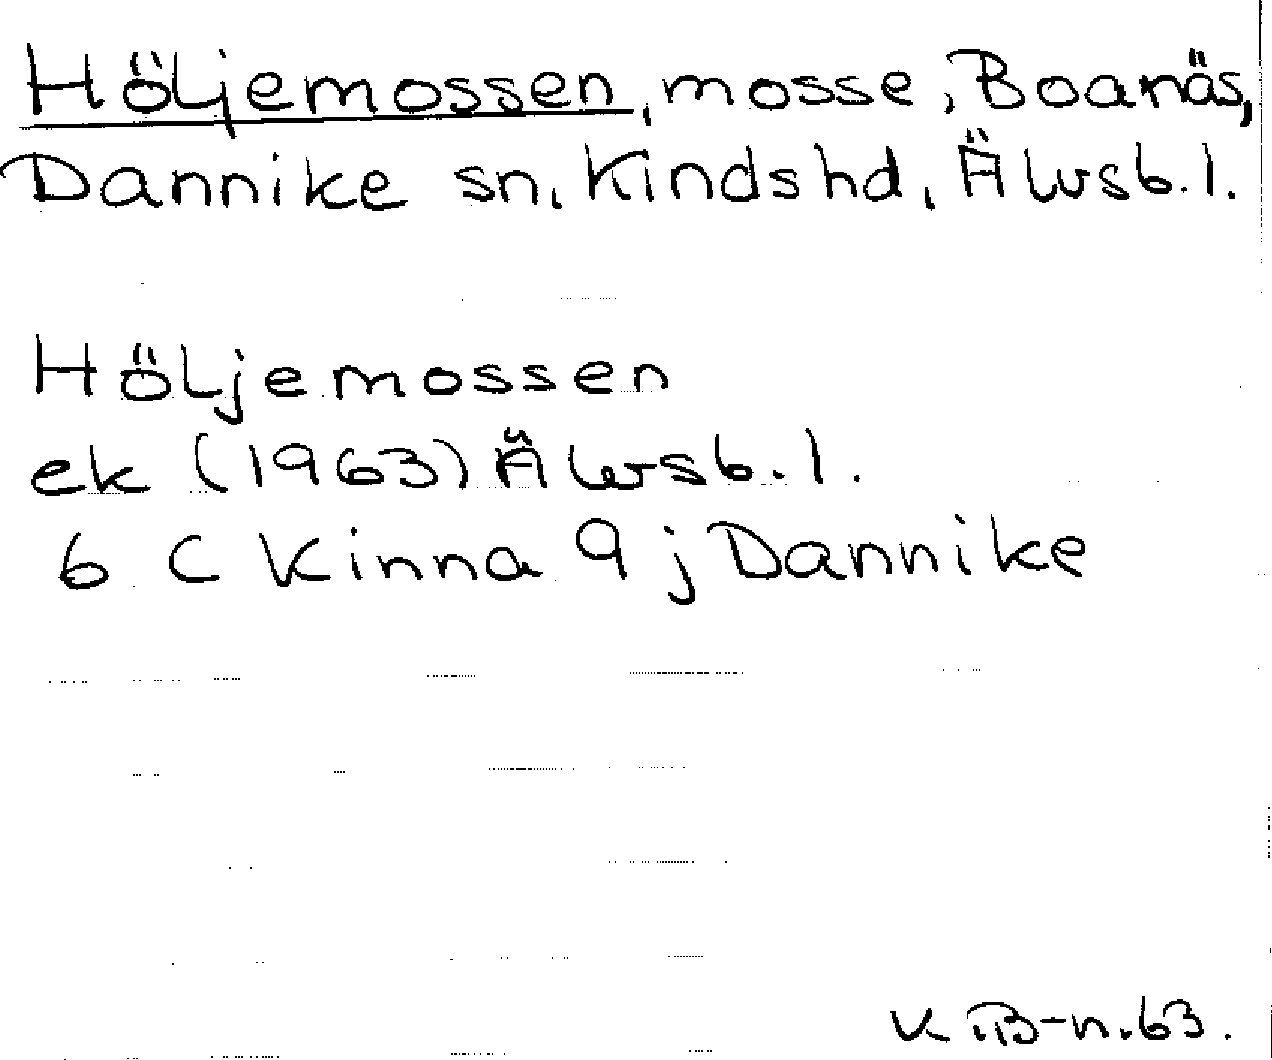 Höljemossen, mosse, Boanäs,
Dannike sn, Kinds hd, Älvsb. l.
Höljemossen
ek (1963) Älvsb. l.
6 C Kinna 9 j Dannike
K. B-n. 63.